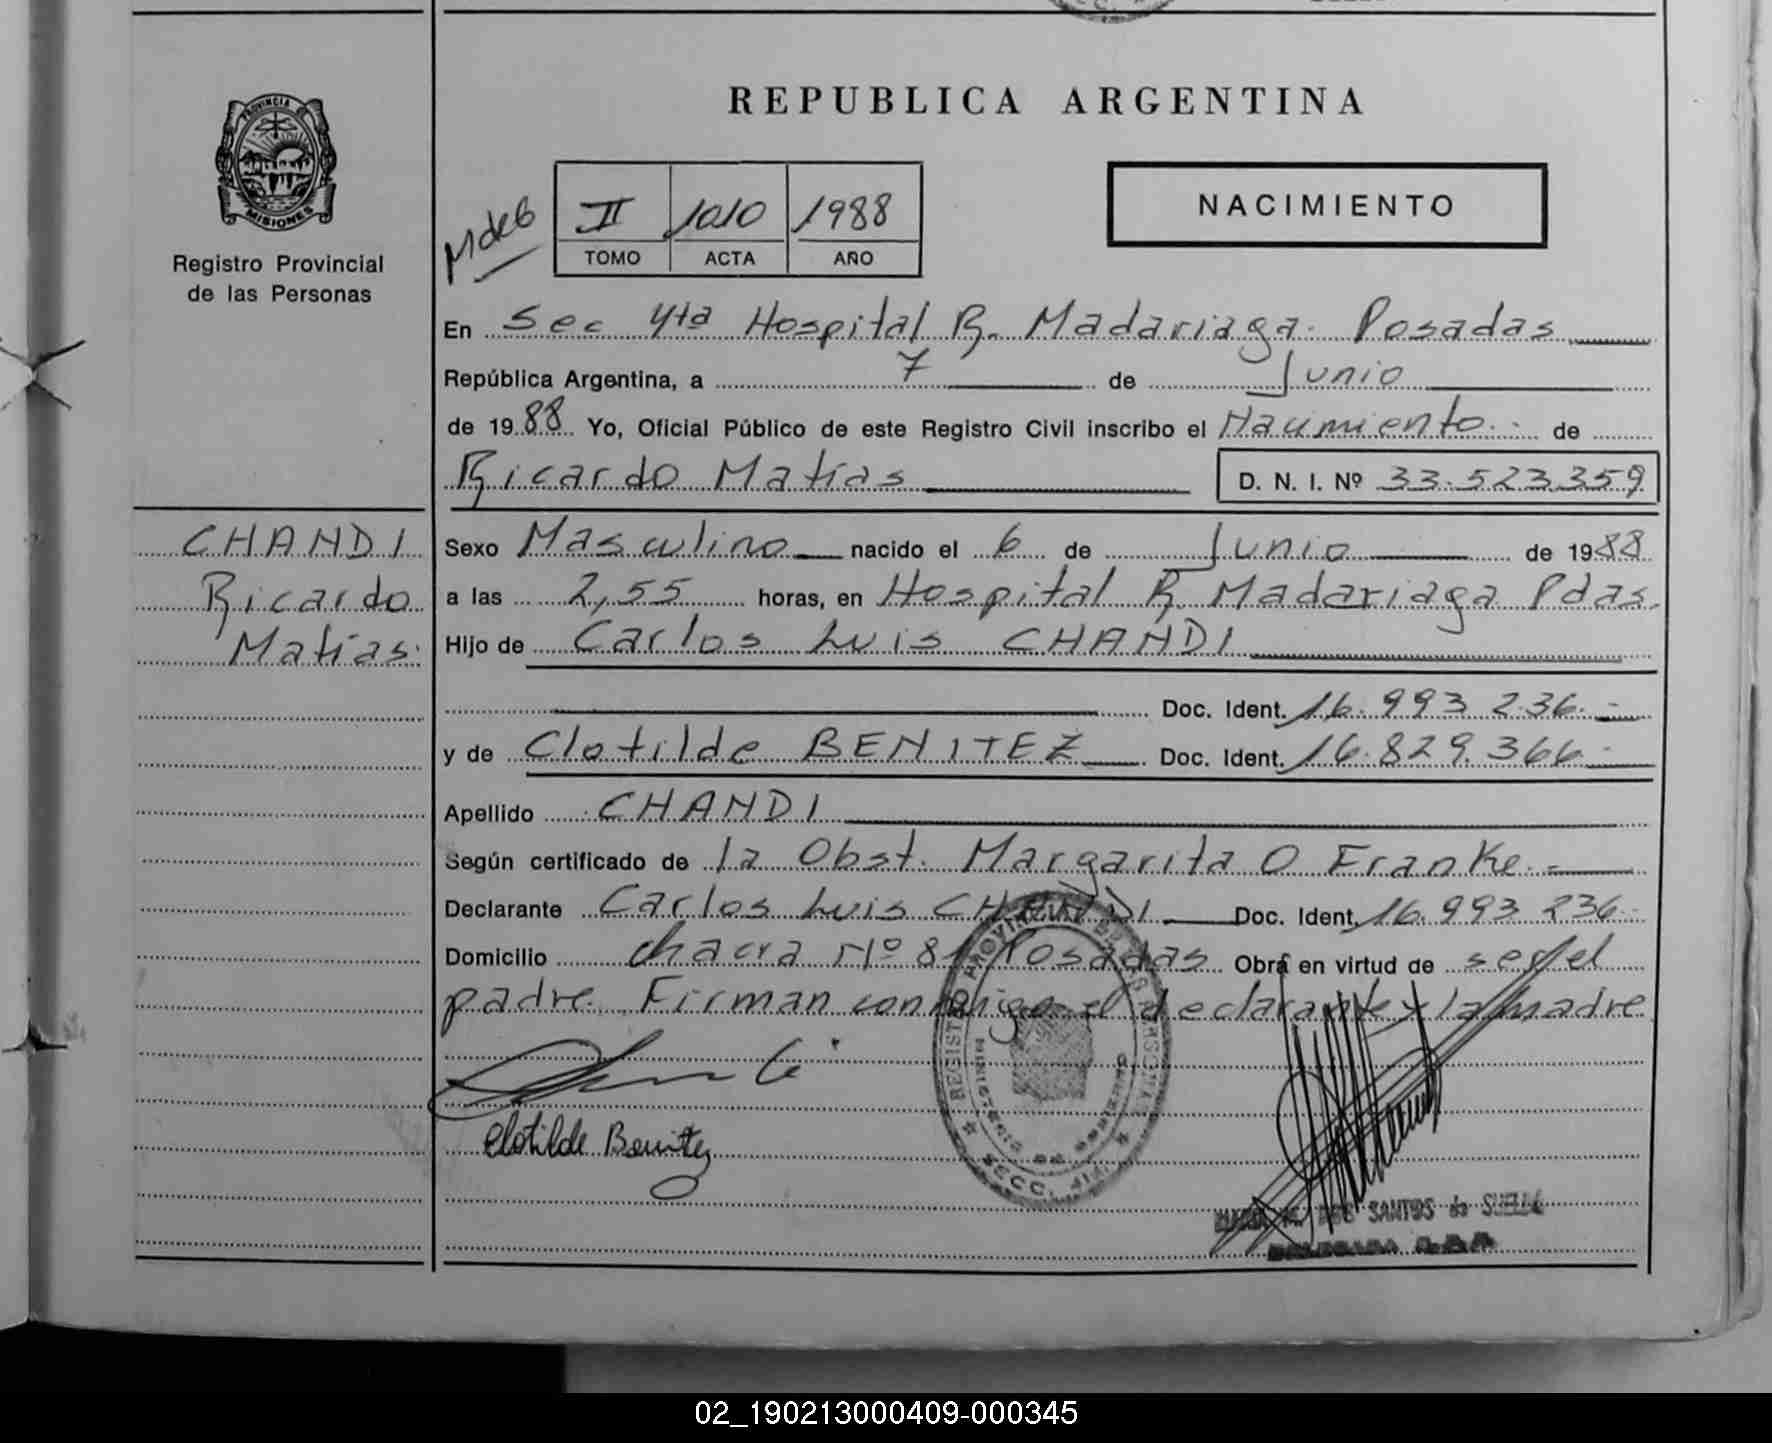 REPUBLICA ARGENTINA
PROVINCIA DE
MISIONES
Registro Provincial
de las Personas
II 1010 1988
TOMO ACTA AÑO
NACIMIENTO
En Sec 4ta Hospital R. Madariaga. Posadas
República Argentina, a 7 de Junio
de 1988 Yo, Oficial Público de este Registro Civil inscribo el Nacimiento de
Ricardo Matías D. N. I. Nº 33.523.359
CHANDI
Ricardo
Matías.
Sexo Masculino nacido el 6 de Junio de 1988
a las 2,55 horas, en Hospital R. Madariaga Pdas.
Hijo de Carlos Luis CHANDI
Doc. Ident. 16.993.236.-
y de Clotilde BENITEZ Doc. Ident. 16.829.366.-
Apellido CHANDI
Según certificado de la Obst. Margarita O Franke.-
Declarante Carlos Luis CHANDI Doc. Ident. 16.993 236.-
Domicilio chacra Nº 81 Posadas Obra en virtud de ser el
padre. Firman conmigo el declarante y la madre
Clotilde Benitez
REGISTRO PROVINCIAL DE LAS PERSONAS
MINISTERIO DE GOBIERNO
SECC. 4ta.
DOS SANTOS de
02_190213000409-000345